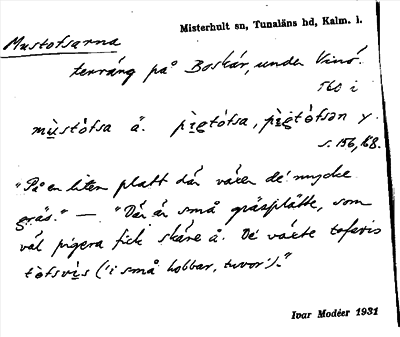 Misterhult sn, Tunaläns hd, Kalm. l.
Mustofsarna
terräng på Boskär, under Vinö.
560 i
mùstòfsa ä. pìgtófsa, pìgtòfsən y.
s. 156, 168.
"På en liten platt där växer de' mycke
gräs." — "Där är små gräsplätte, som
väl pigera fick skära å. De växte tofsvis
tòfsvìs ('i små hobbar, tuvor')."
Ivar Modéer 1931